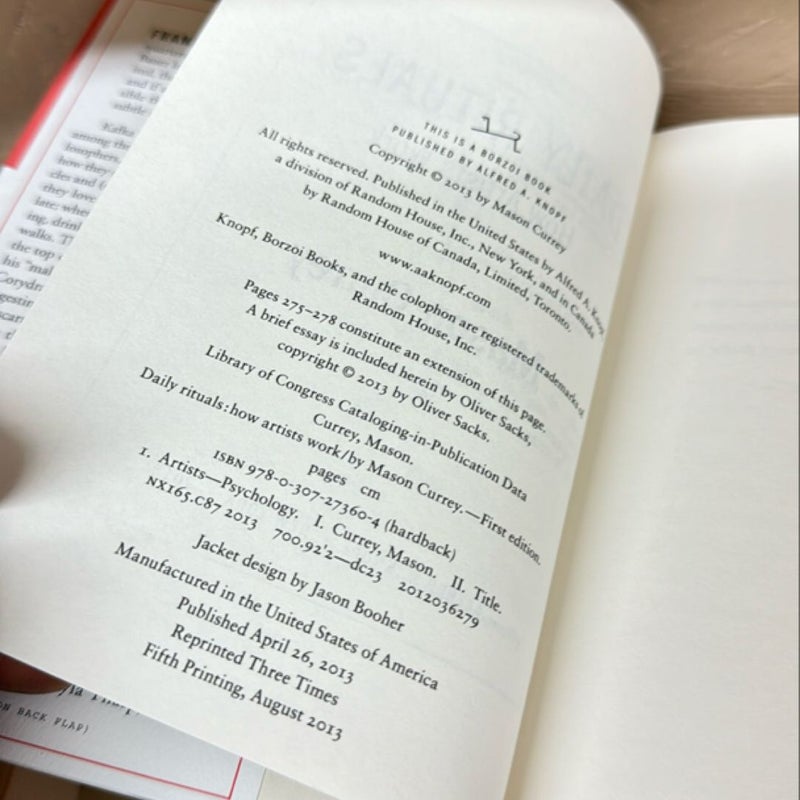 THIS IS A BORZOI BOOK
PUBLISHED BY ALFRED A. KNOPF
Copyright © 2013 by Mason Currey
All rights reserved. Published in the United States by Alfred A. Knopf,
a division of Random House, Inc., New York, and in Canada
by Random House of Canada, Limited, Toronto.
www.aaknopf.com
Knopf, Borzoi Books, and the colophon are registered trademarks of
Random House, Inc.
Pages 275–278 constitute an extension of this page.
A brief essay is included herein by Oliver Sacks,
copyright © 2013 by Oliver Sacks.
Library of Congress Cataloging-in-Publication Data
Currey, Mason.
Daily rituals : how artists work / by Mason Currey.—First edition.
pages cm
ISBN 978-0-307-27360-4 (hardback)
1. Artists—Psychology. I. Currey, Mason. II. Title.
NX165.C87 2013 700.92'2—dc23 2012036279
Jacket design by Jason Booher
Manufactured in the United States of America
Published April 26, 2013
Reprinted Three Times
Fifth Printing, August 2013
FRAN
Kafka
among the
how they
cles and
they love
late; whe
ing, drin
walks. T
the top
his "mal
Corydn
ON BACK FLAP)